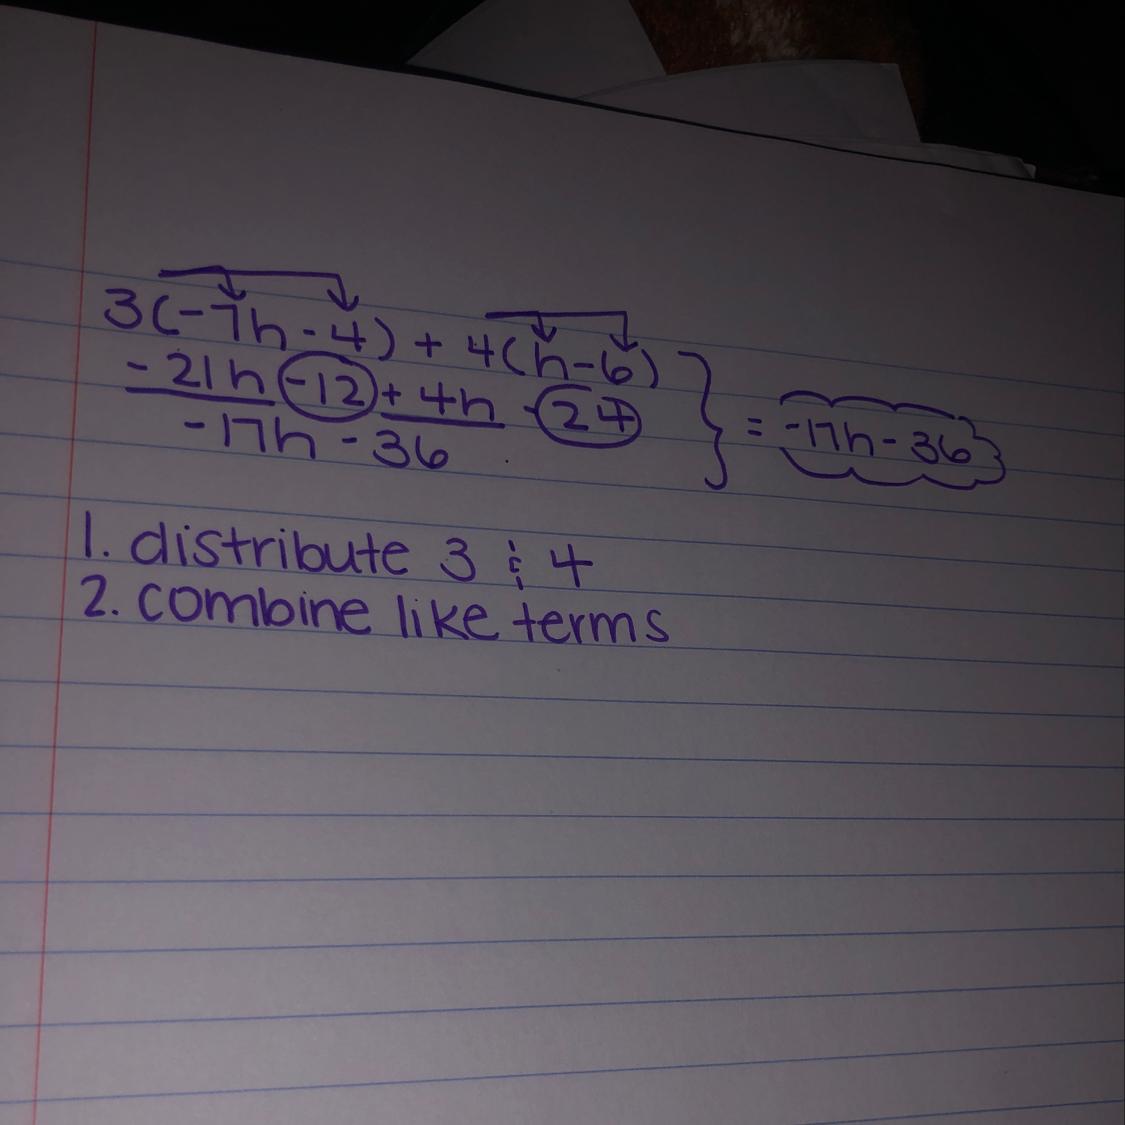 3(-7h-4) + 4(h-6)
-21h -12 + 4h -24
-17h - 36
= -17h - 36
1. distribute 3 & 4
2. combine like terms